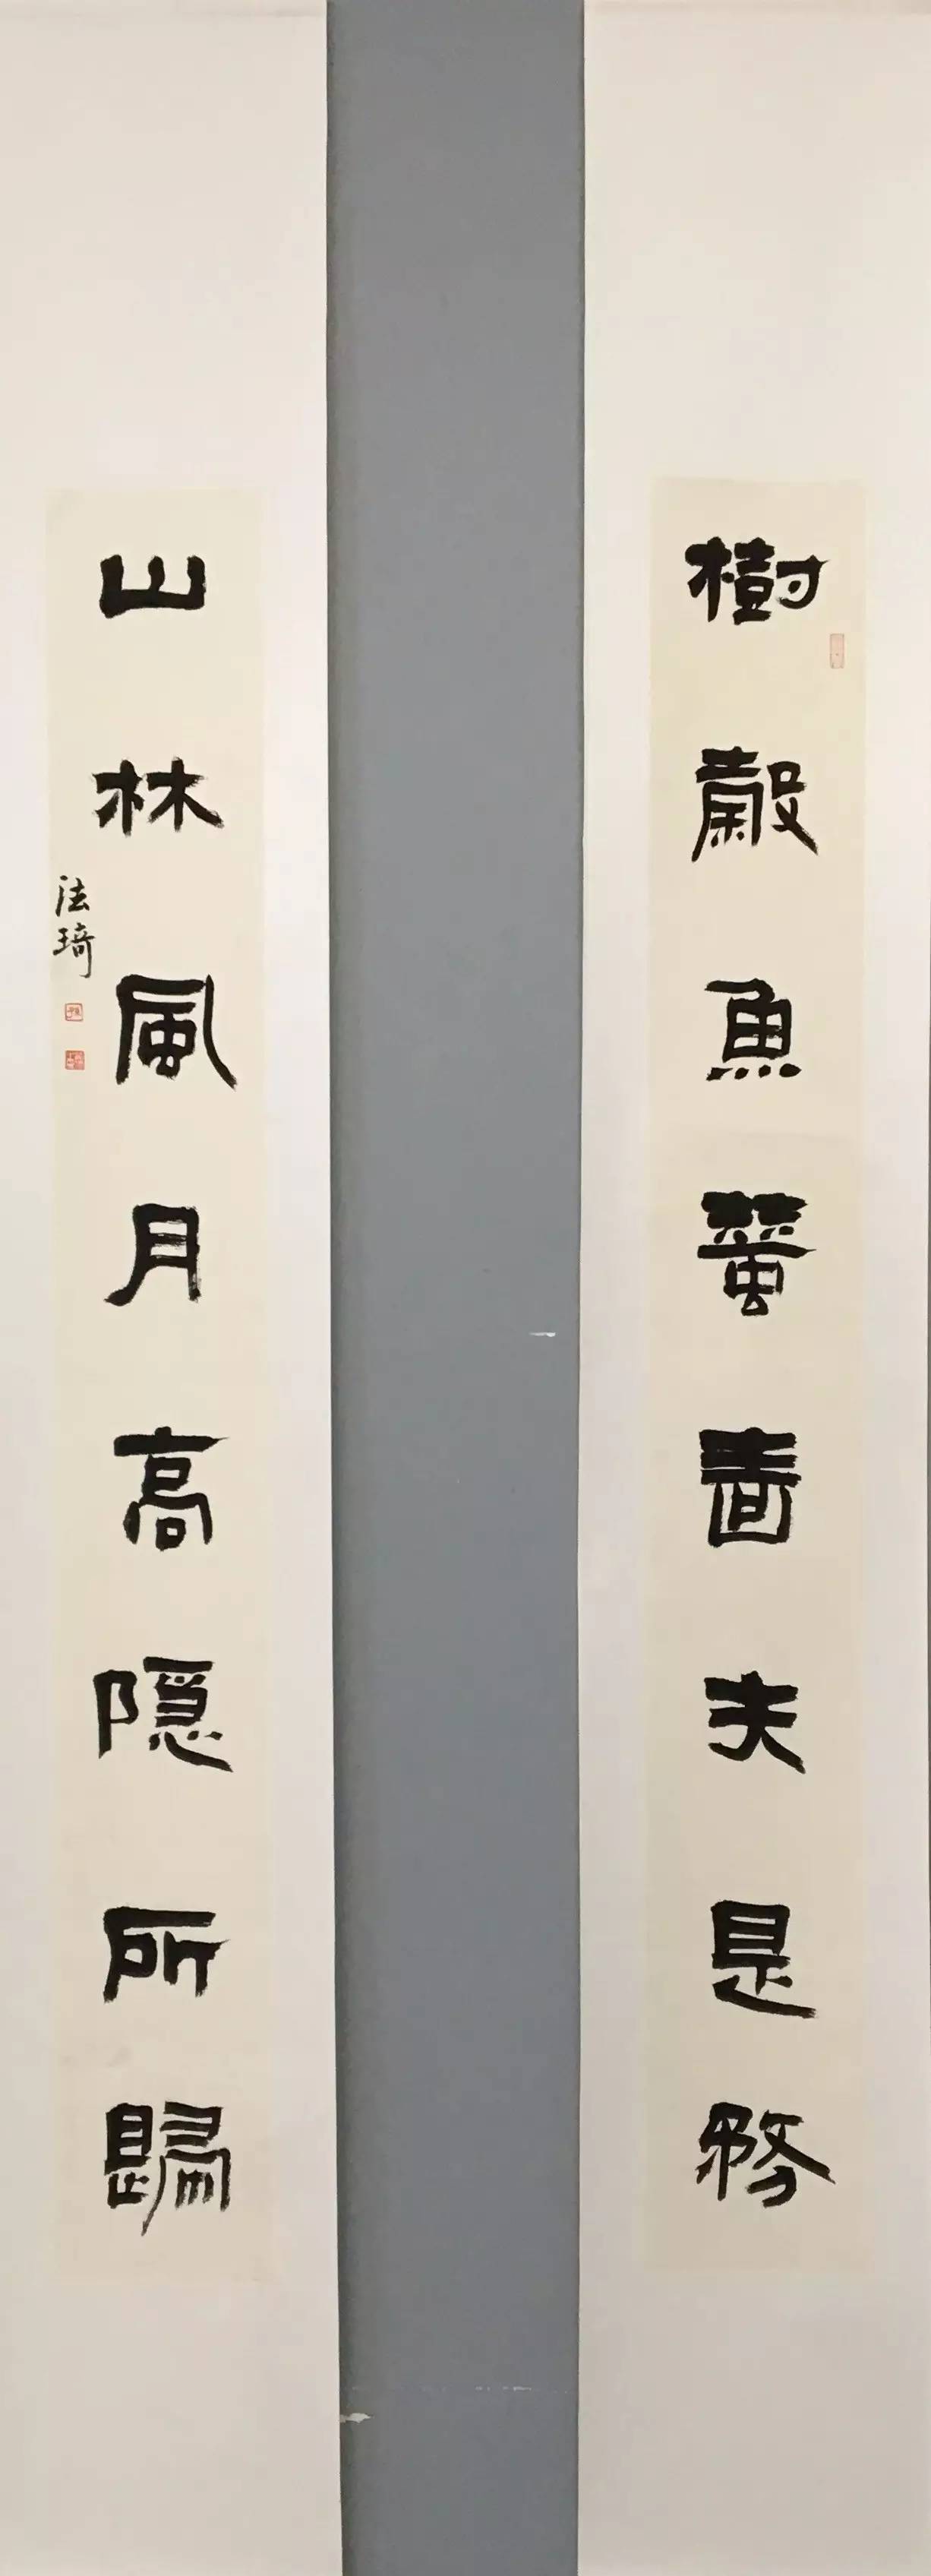 樹穀魚蠶嗇夫是務
山林風月高隱所歸
法琦